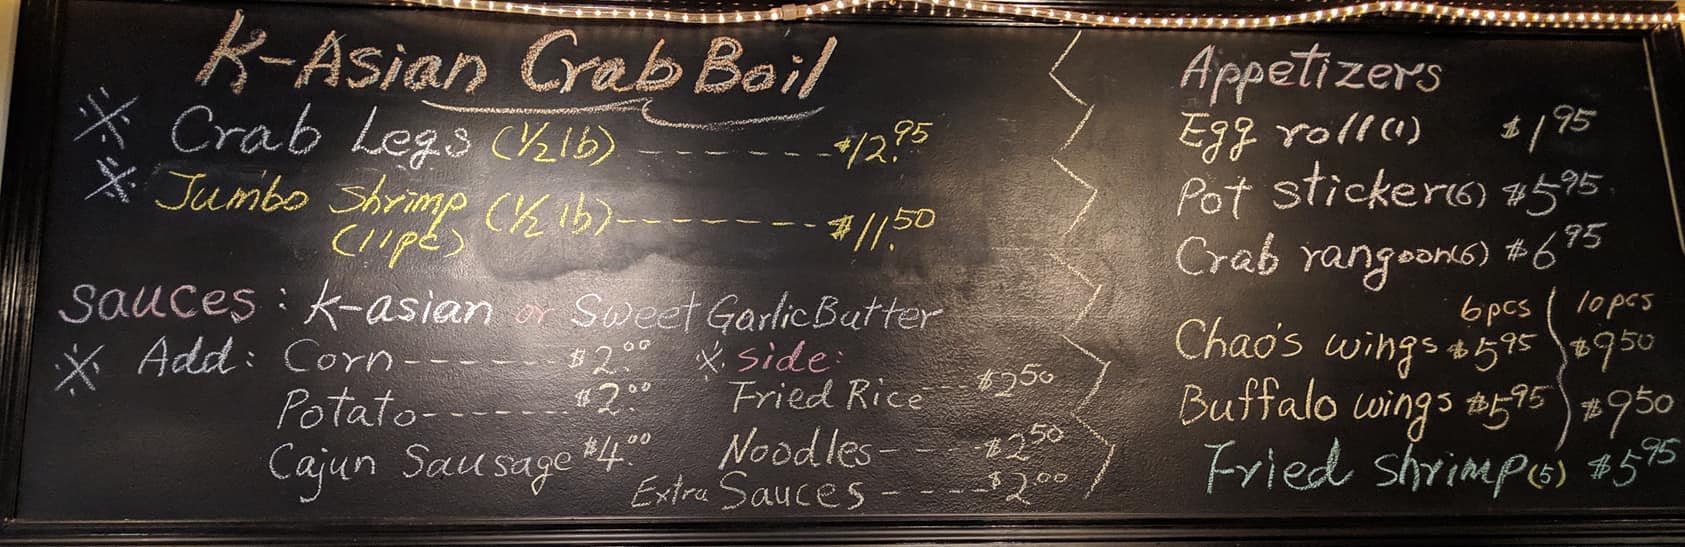 K-Asian Crab Boil
※ Crab Legs (1/2 lb) ------- $12.95
※ Jumbo Shrimp (1/2 lb) -------- $11.50
(11pc)
Sauces: K-asian or Sweet Garlic Butter
※ Add: Corn ------- $2.00
Potato ------- $2.00
Cajun Sausage $4.00
※ Side:
Fried Rice --- $2.50
Noodles ---- $2.50
Extra Sauces ----- $2.00
Appetizers
Egg roll (1) $1.95
Pot sticker (6) $5.95
Crab rangoon (6) $6.95
6pcs | 10pcs
Chao's wings $5.95 $9.50
Buffalo wings $5.95 $9.50
Fried shrimp (5) $5.95